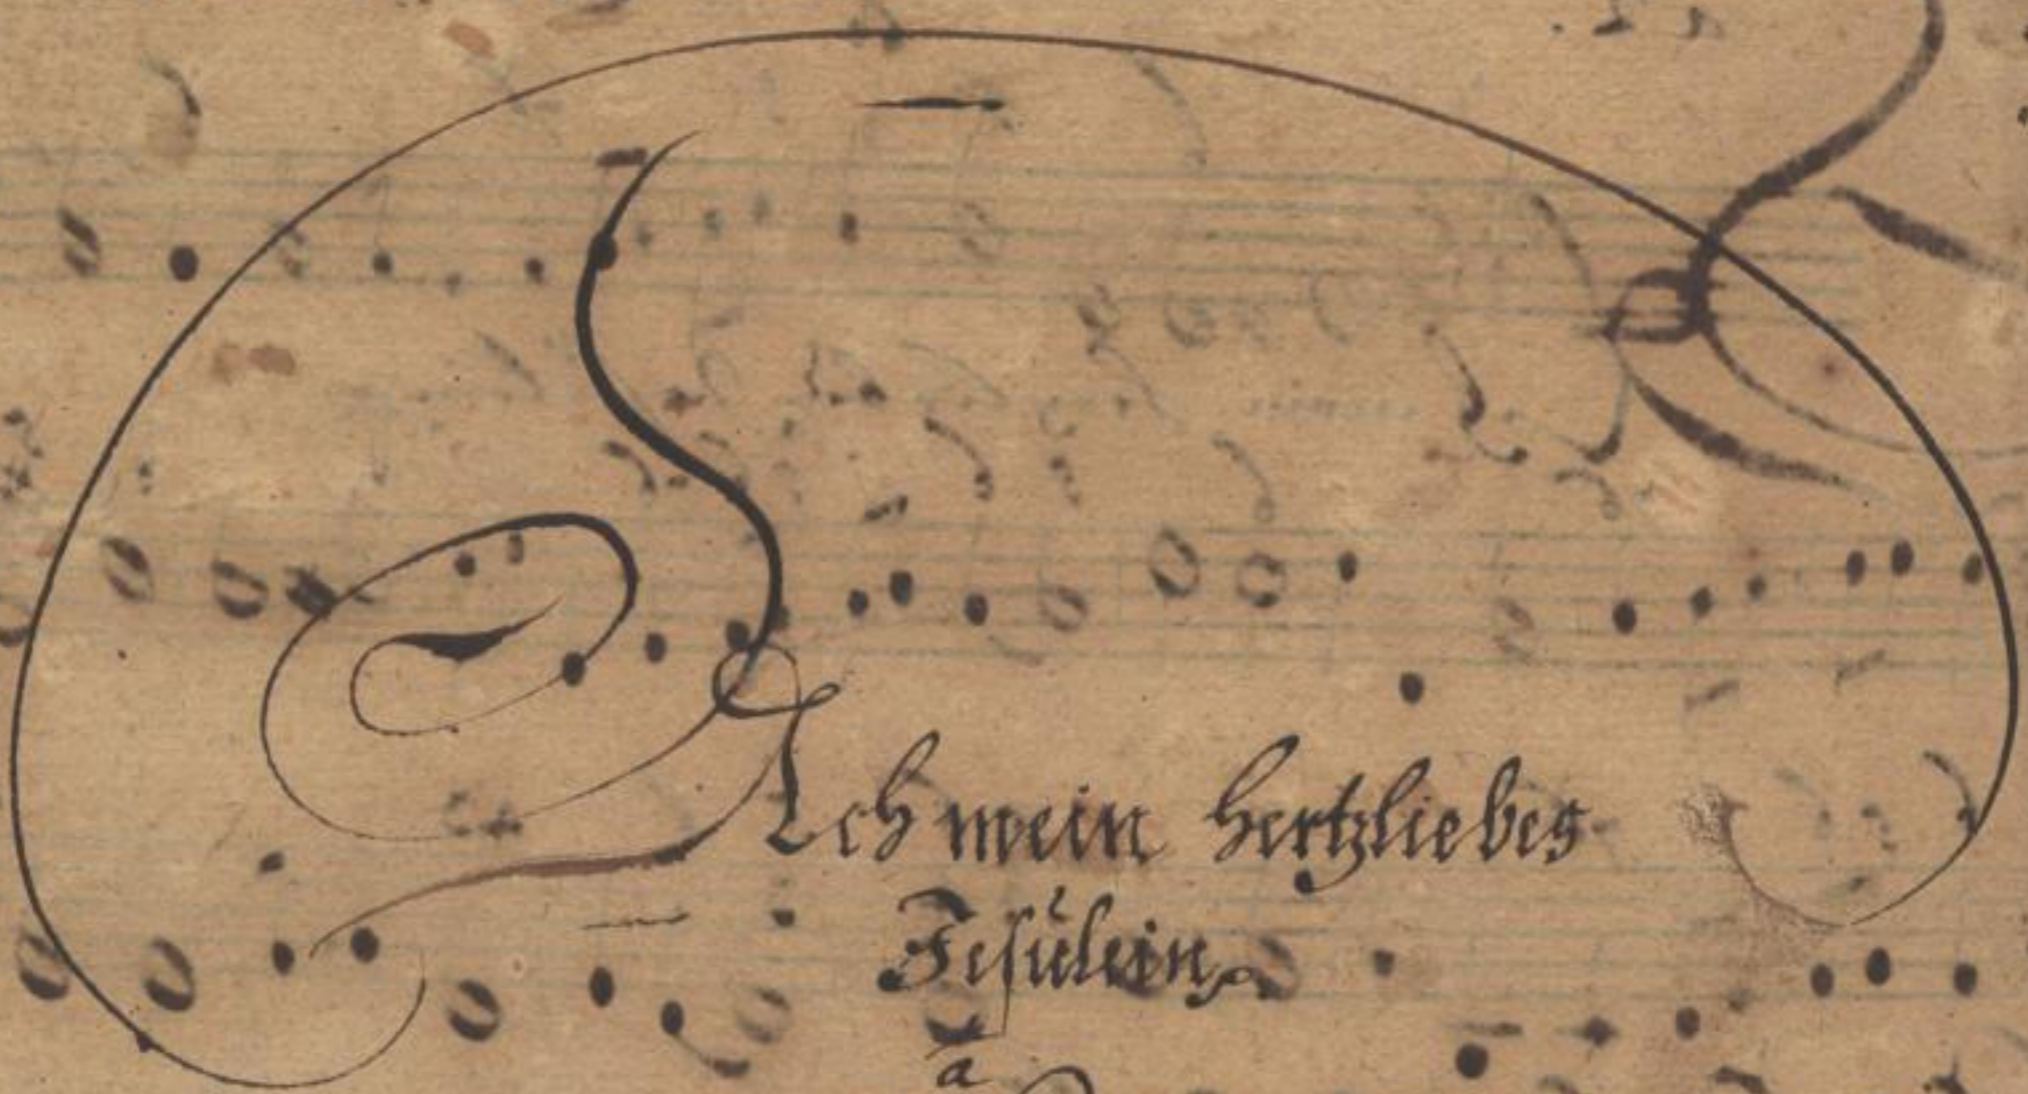 Ach mein hertzliebes
Jesulein.
a